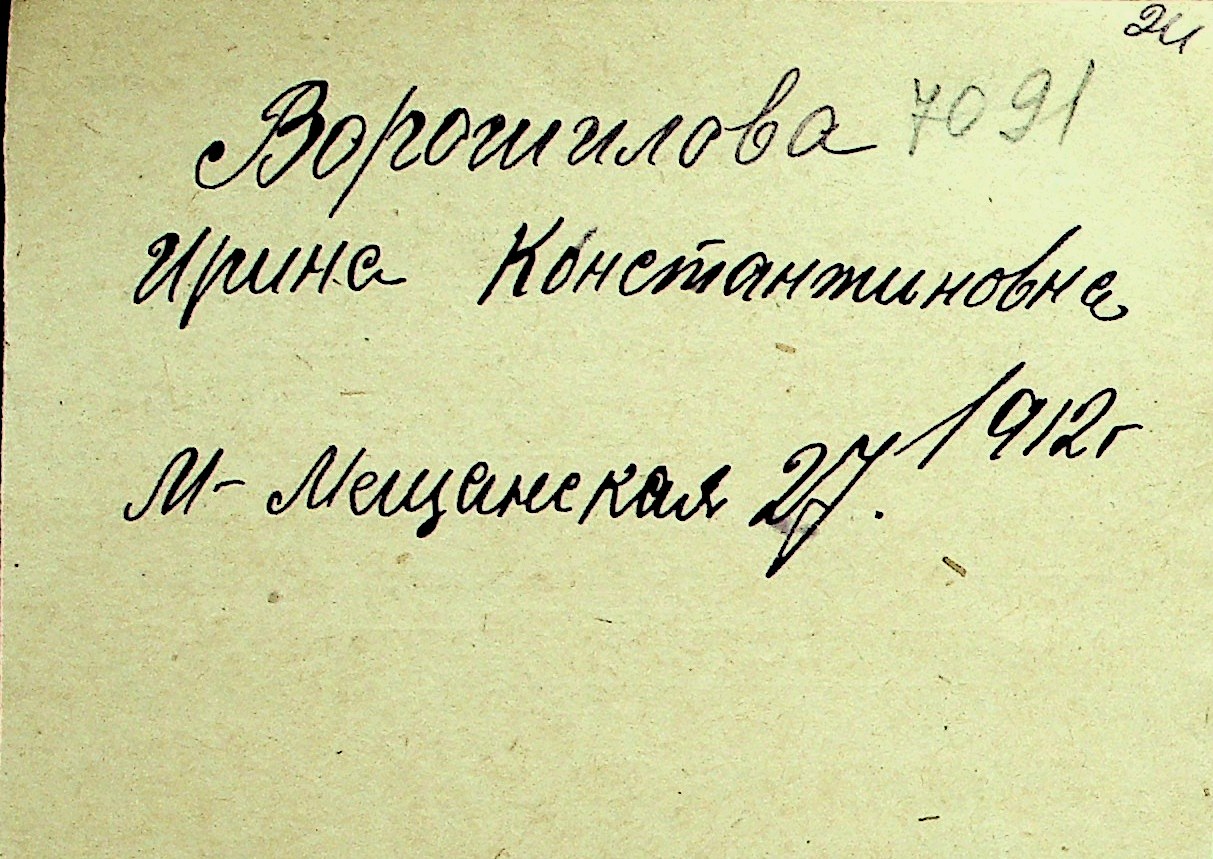 Ворошилова 7091
Ирина Константиновна
1912г
М-Мещанская 27.